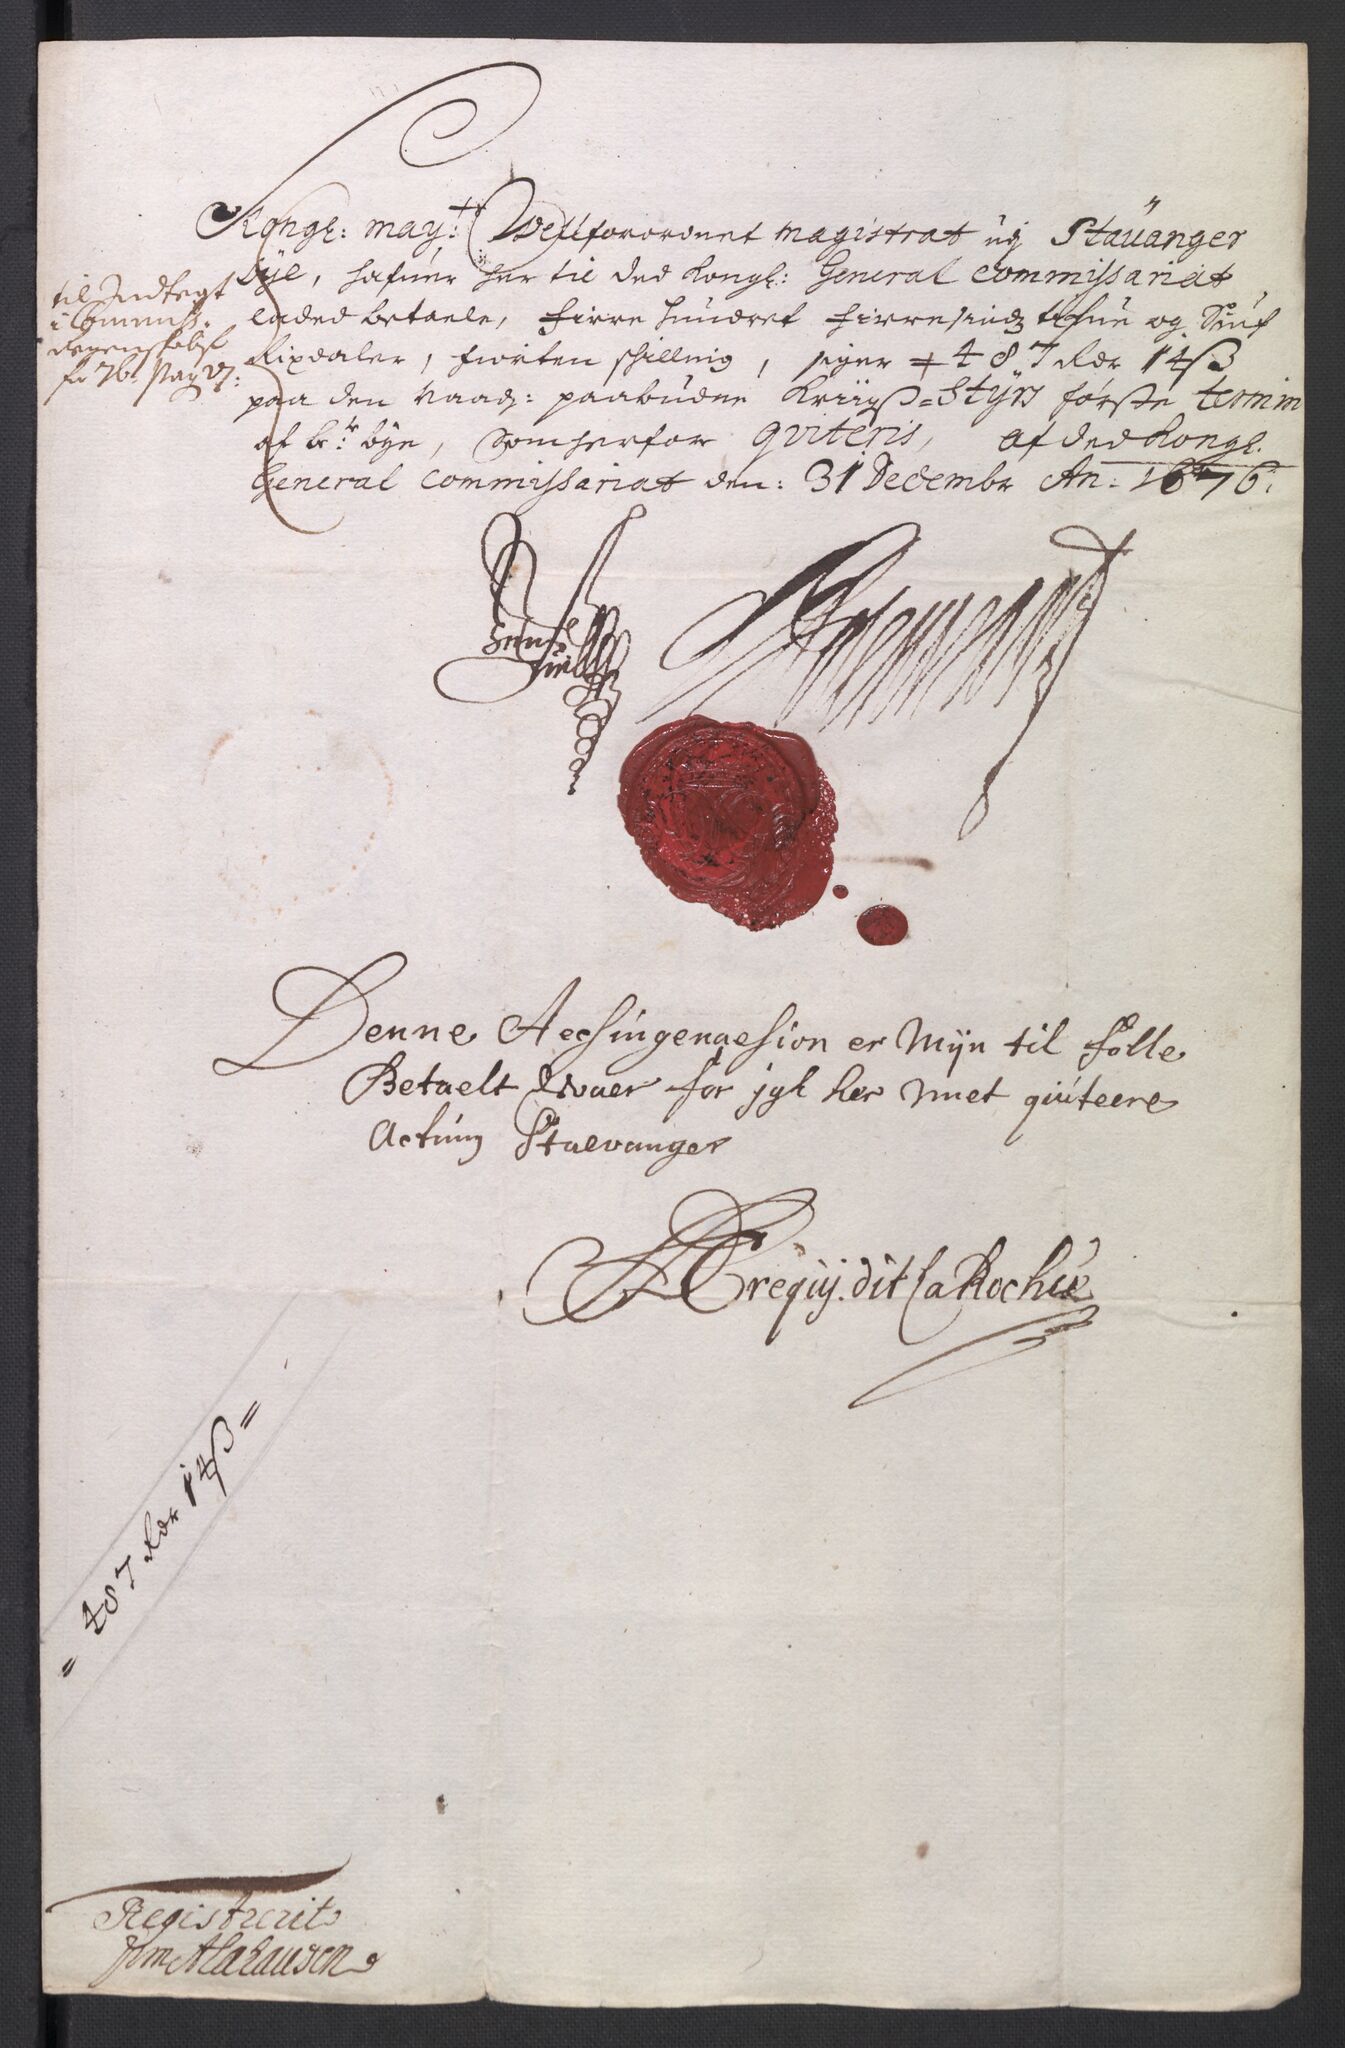 Kongl: may:tt Wellforordnet magistrat udj Staüanger
bye, hafuer her til ded Kongl: General commissariat
laded betaele, fiirre hundret fiirresindz tiufue og Siuf
Rixdaler, fiorten schilling, siger # 487 Rdr 14 ß
paa den naadz: paabudne Kriigß-Styrß første termin
af b:te bye, som herfor qviteris, af ded Kongl.
General commissariat den: 31 Decembr An: 1676.
til Indtegt
i Commiss:
Regenskabet
for 76. Pag 27:
Denne Assingenaesion er Myn til folle
Betaelt Hvaer for jgh her met quiteere
Actum Staevanger
Crequy. dit la Rochie
= 487 Rdr 14 ß =
Registrerit